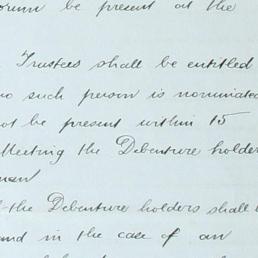 orum be present at the
Trustees shall be entitled
no such person is nominated
not be present within 15
Meeting the Debenture holder
man
the Debenture holders shall
and in the case of an